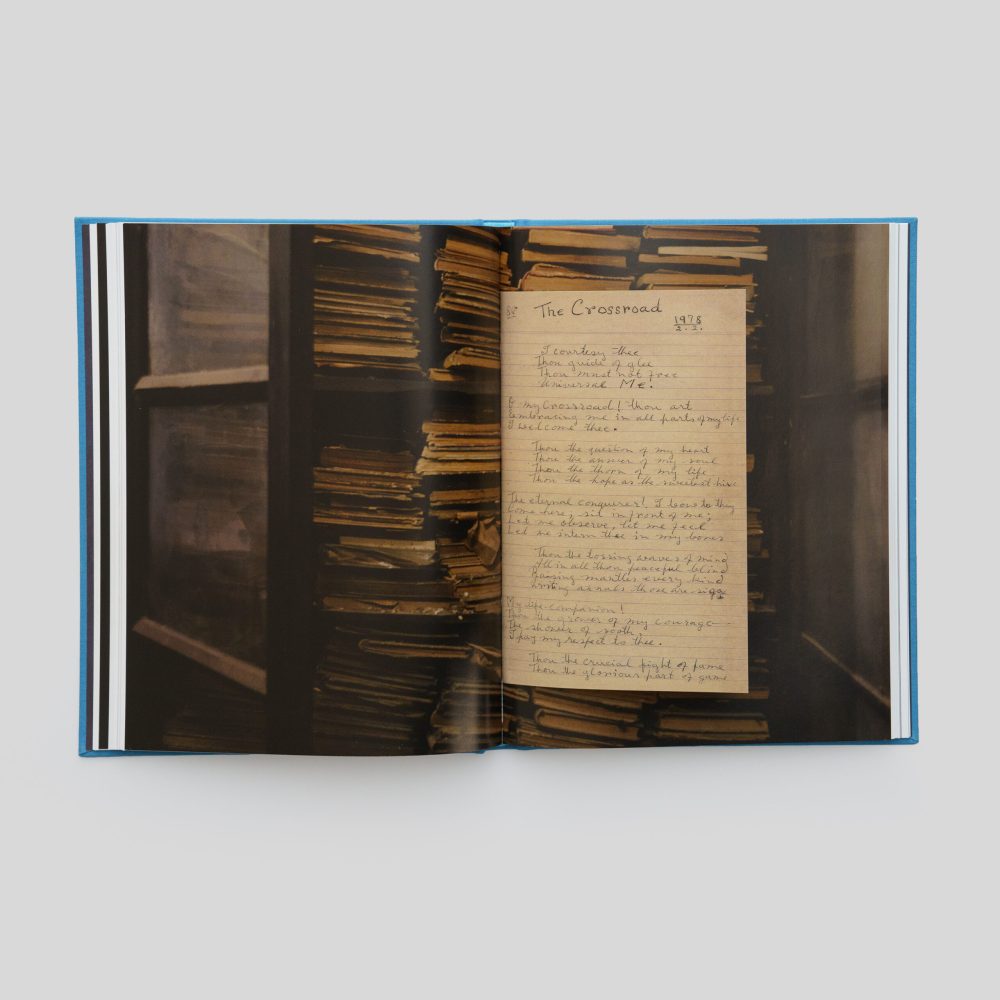 The Crossroad
1978
2. 2.
I courtesy thee
Thou guide of glee
Thou must not free
Universal Me.
O my Crossroad! thou art
embracing me in all parts of my life
I welcome thee.
Thou the question of my heart
Thou the answer of my soul
Thou the thorn of my life
Thou the hope as the sweetest hive
The eternal conquerer! I bow to thy
Come here, sit in front of me;
Let me observe, let me feel
Let me intern thee in my bones
Thou the tossing waves of mind
All in all thou peaceful blind
Passing mantles every kind
as those are
My life-companion!
Thou the grower of my courage
The shower of sooth.
I pay my respect to thee.
Thou the crucial fight of fame
Thou the glorious part of game